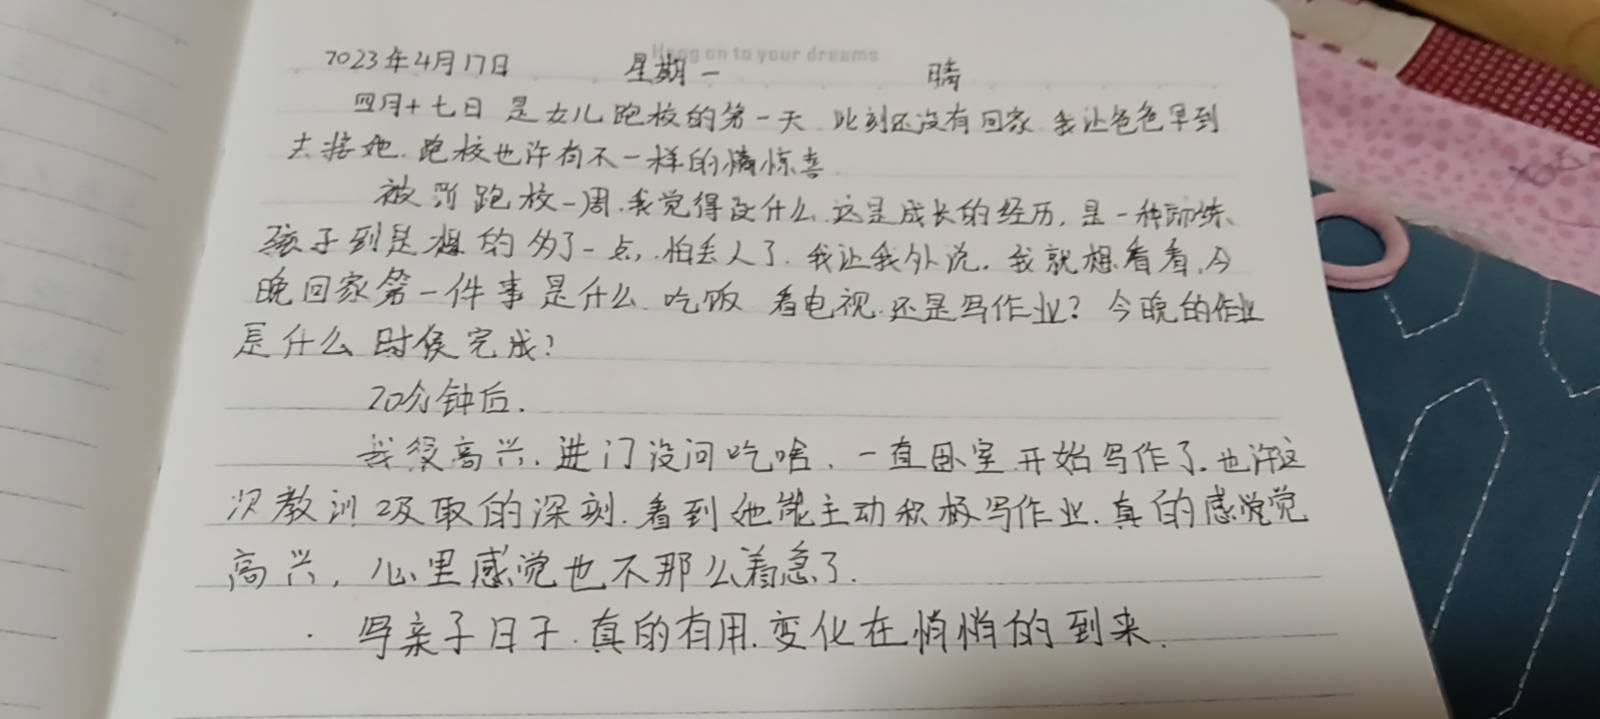 Hang on to your dreams
2023年4月17日 星期一 晴
四月十七日 是女儿跑校的第一天 此刻还没有回家 我让爸爸早到
去接她. 跑校也许有不一样的惊喜
被 跑校一周. 我觉得没什么. 这是成长的经历, 是一种训练、
孩子到是想的多了一点, 怕丢人了. 我让我外说. 我就想看看, 今
晚回家第一件事是什么. 吃饭 看电视. 还是写作业? 今晚的作业
是什么时侯完成?
20分钟后.
我很高兴. 进门没问吃啥. 一直卧室开始写作了. 也许这
次教训吸取的深刻. 看到她能主动积极写作业. 真的感觉觉
高兴, 心里感觉也不那么着急了.
写亲子日子. 真的有用. 变化在悄悄的到来.